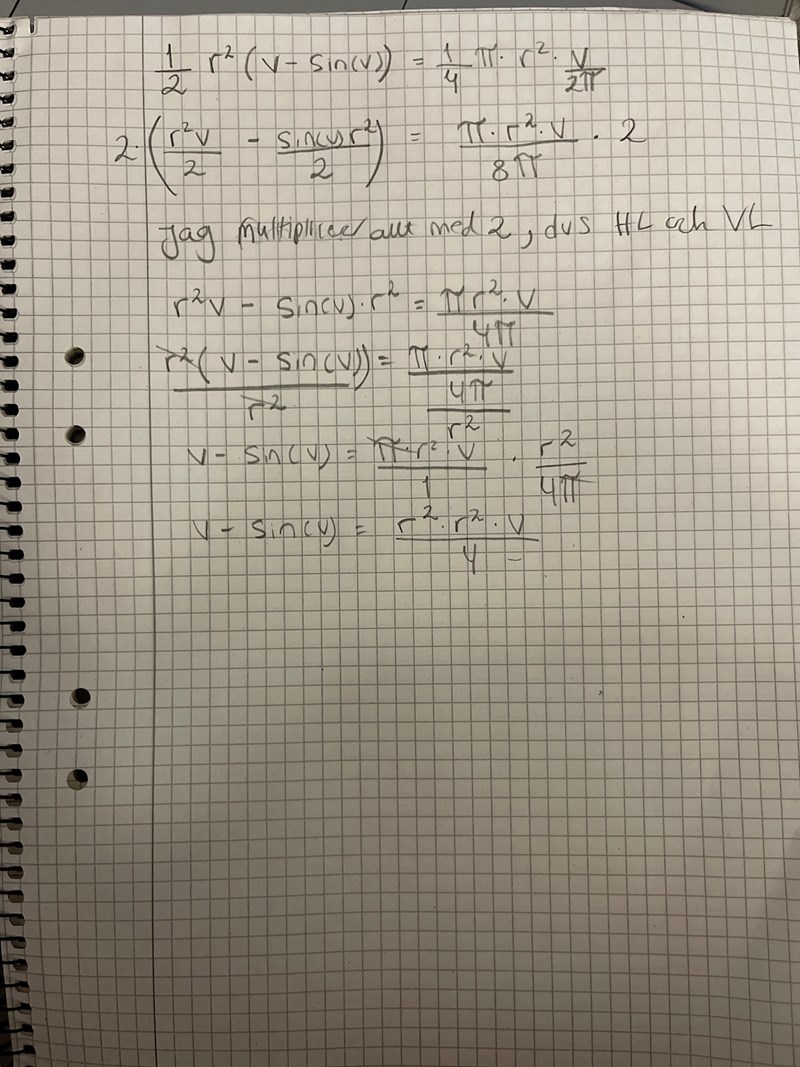 1/2 r² (v - sin(v)) = 1/4 π · r² · v/2π
2·(r²v/2 - sin(v)r²/2) = π · r² · v/8π · 2
Jag multiplicerar allt med 2, dvs HL och VL
r²v - sin(v)·r² = πr²·v/4π
r²(v - sin(v))/r² = π·r²·v/4π/r²
v - sin(v) = π·r²·v/1 · r²/4π
v - sin(v) = r²·r²·v/4